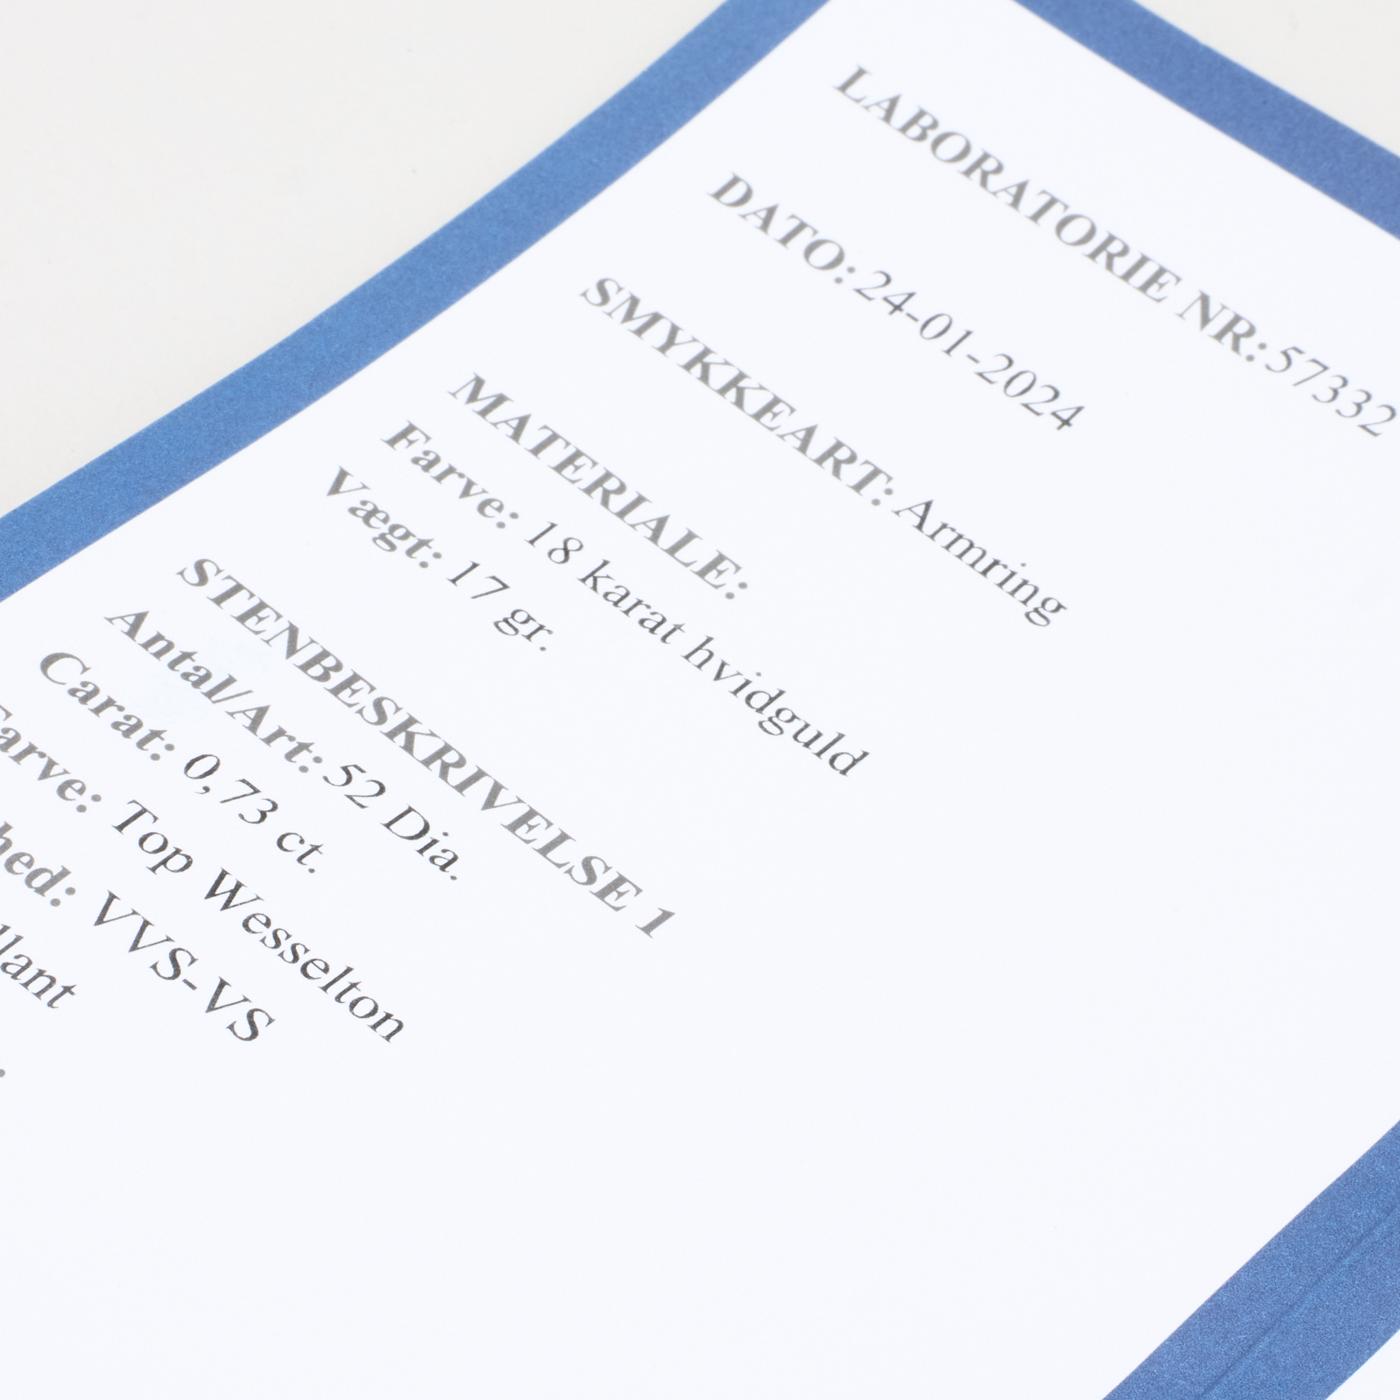 LABORATORIE NR: 57332
DATO: 24-01-2024
SMYKKEART: Armring
MATERIALE:
Farve: 18 karat hvidguld
Vægt: 17 gr.
STENBESKRIVELSE 1
Antal/Art: 52 Dia.
Carat: 0,73 ct.
arve: Top Wesselton
hed: VVS-VS
llant